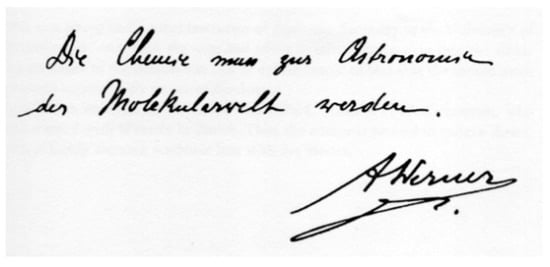 Die Chemie muss zur Astronomie
der Molekularwelt werden.
A Werner